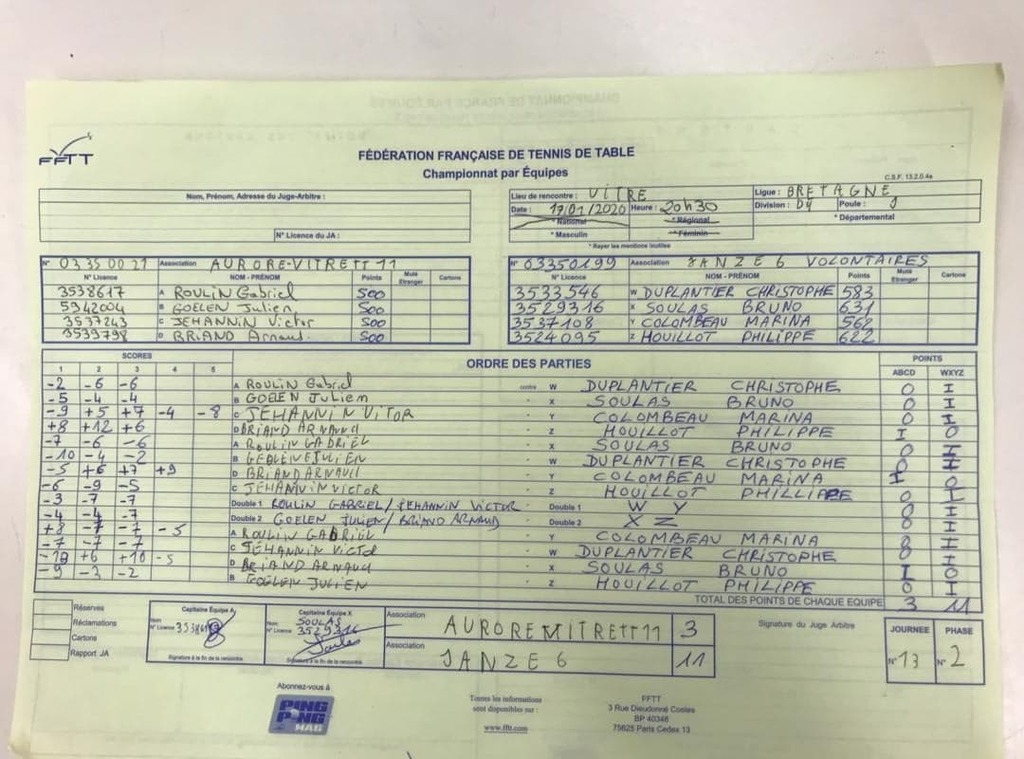 FFTT
FÉDÉRATION FRANÇAISE DE TENNIS DE TABLE
Championnat par Équipes
C.S.F. 13.2.0.4a
Nom, Prénom, Adresse du Juge-Arbitre :
N° Licence du JA :
Lieu de rencontre : VITRE Ligue : BRETAGNE
Date : 17/01/2020 Heure : 20h30 Division : D4 Poule : J
* National * Régional * Départemental
* Masculin * Féminin
* Rayer les mentions inutiles
N° 03350021 Association AURORE-VITRE TT 11
N° Licence NOM - PRÉNOM Points Muté Etranger Cartons
3538617 A ROULIN Gabriel 500
5942004 B GOELEN Julien 500
3537243 C JEHANNIN Victor 500
3539798 D BRIAND Arnaud 500
N° 03350199 Association JANZE 6 VOLONTAIRES
N° Licence NOM - PRÉNOM Points Muté Etranger Cartons
3533546 W DUPLANTIER CHRISTOPHE 583
3529316 X SOULAS BRUNO 631
3537108 Y COLOMBEAU MARINA 562
3524095 Z HOUILLOT PHILIPPE 622
SCORES ORDRE DES PARTIES POINTS
1 2 3 4 5 ABCD WXYZ
-2 -6 -6 A ROULIN Gabriel contre W DUPLANTIER CHRISTOPHE 0 I
-5 -4 -4 B GOELEN Juliem " X SOULAS BRUNO 0 I
-9 +5 +7 -4 -8 C JEHANNIN VITOR " Y COLOMBEAU MARINA 0 I
+8 +12 +6 D BRIAND ARNAUD " Z HOUILLOT PHILIPPE I 0
-7 -6 -6 A ROULIN GABRIEL " X SOULAS BRUNO 0 I
-10 -4 -2 B JULIEN " W DUPLANTIER CHRISTOPHE 0 I
-5 +6 +7 +9 D BRIAND ARNAUD " Y COLOMBEAU MARINA I 0
-6 -9 -5 C JEHANNIN VICTOR " Z HOUILLOT PHILLIPPE 0 I
-3 -7 -7 Double 1 ROULIN GABRIEL/JEHANNIN VICTOR " Double 1 W Y 0 I
-4 -4 -7 Double 2 GOELEN JULIEN/BRIAND ARNAUD " Double 2 X Z 0 I
+8 -7 -7 -5 A ROULIN GABRIEL " Y COLOMBEAU MARINA 0 I
-7 -7 -7 C JEHANNIN VICTOR " W DUPLANTIER CHRISTOPHE 0 I
+6 +10 -5 D BRIAND ARNAUD " X SOULAS BRUNO I 0
-9 -3 -2 B GOELEN JULIEN " Z HOUILLOT PHILIPPE 0 I
TOTAL DES POINTS DE CHAQUE EQUIPE 3 11
Réserves
Réclamations
Cartons
Rapport JA
Capitaine Équipe A
Nom
N° Licence
Signature à la fin de la rencontre
Capitaine Équipe X
Nom SOULAS
N° Licence 3529316
Signature à la fin de la rencontre
Association AURORE VITRE TT 11 3
Association JANZE 6 11
Signature du Juge Arbitre
JOURNEE PHASE
N° 13 N° 2
Abonnez-vous à
PING PONG MAG
Toutes les informations
sont disponibles sur :
www.fftt.com
FFTT
3 Rue Dieudonné Costes
BP 40348
75625 Paris Cedex 13